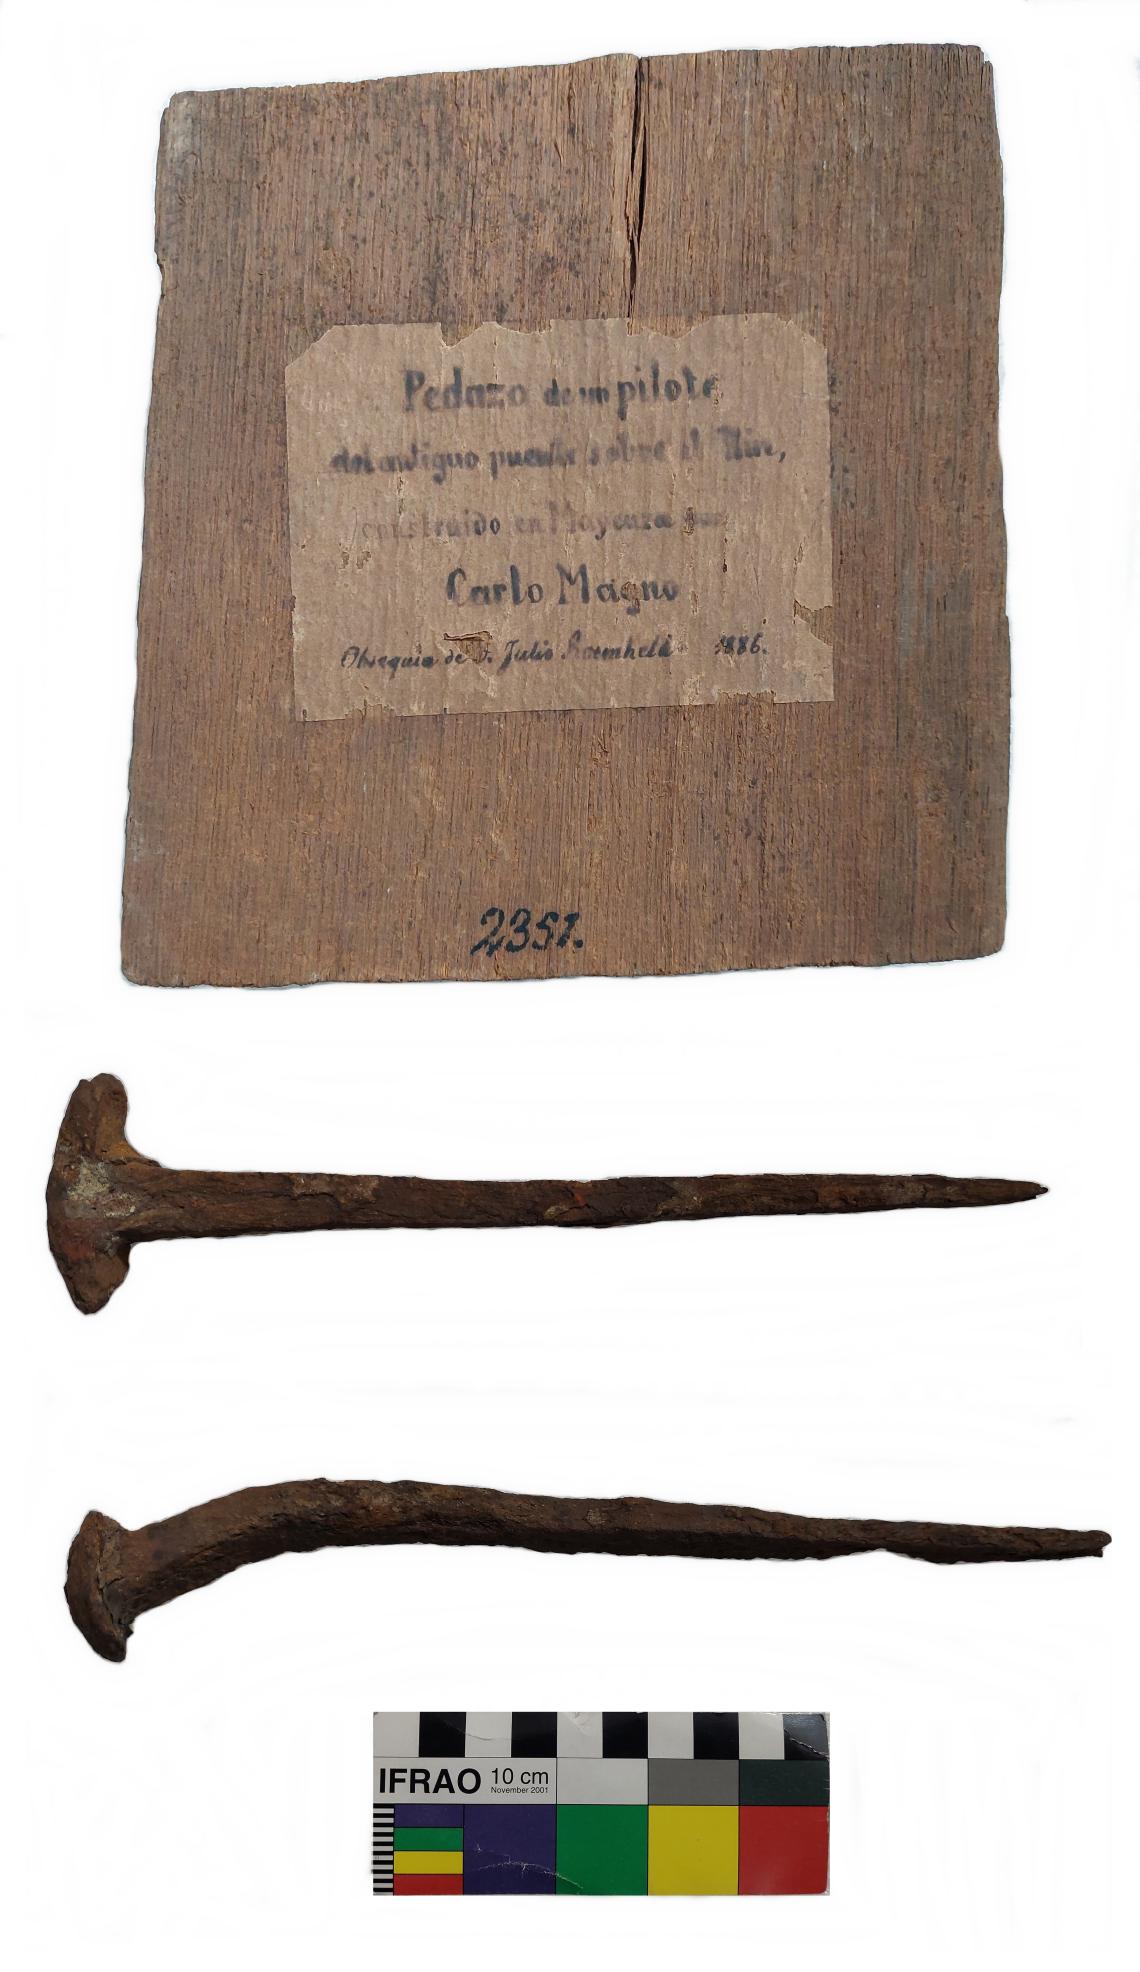 Pedazo de un pilote
del antiguo puente sobre el Rin,
construido en Mayenza por
Carlo Magno
Obsequio de D. Julio 1886.
2351.
IFRAO 10 cm
November 2001